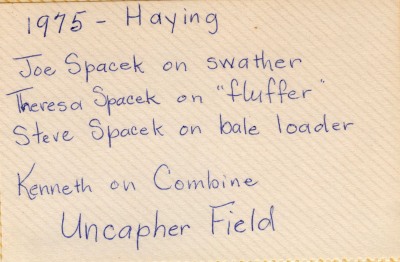 1975 - Haying
Joe Spacek on swather
Theresa Spacek on "fluffer"
Steve Spacek on bale loader
Kenneth on Combine
Uncapher Field